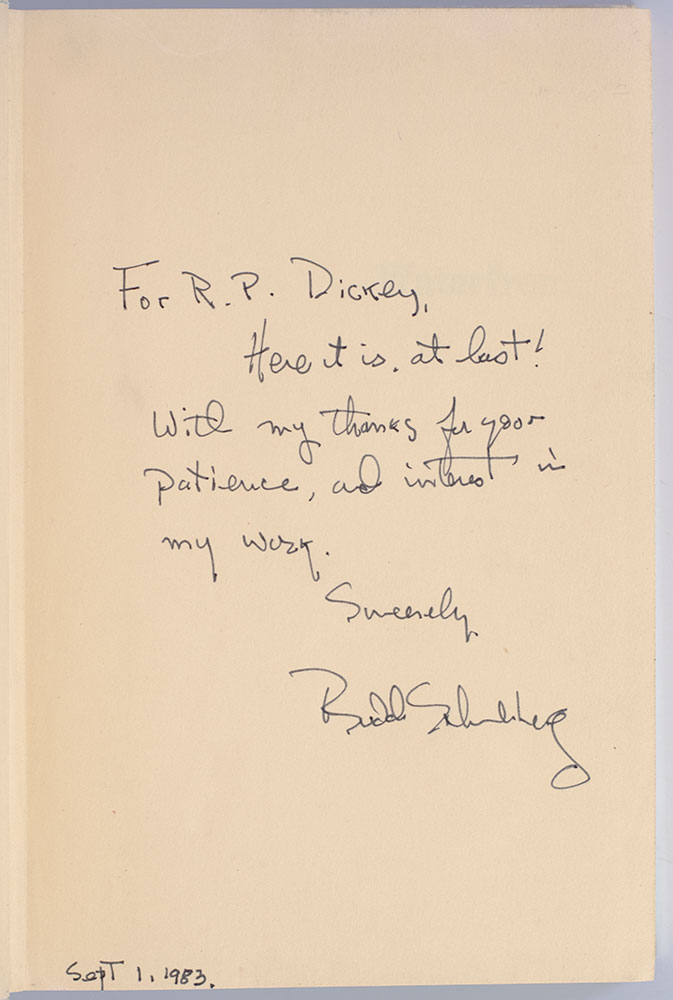 For R. P. Dickey,
Here it is, at last!
With my thanks for your
patience, and interest in
my work.
Sincerely
Budd Schulberg
Sept 1, 1983.